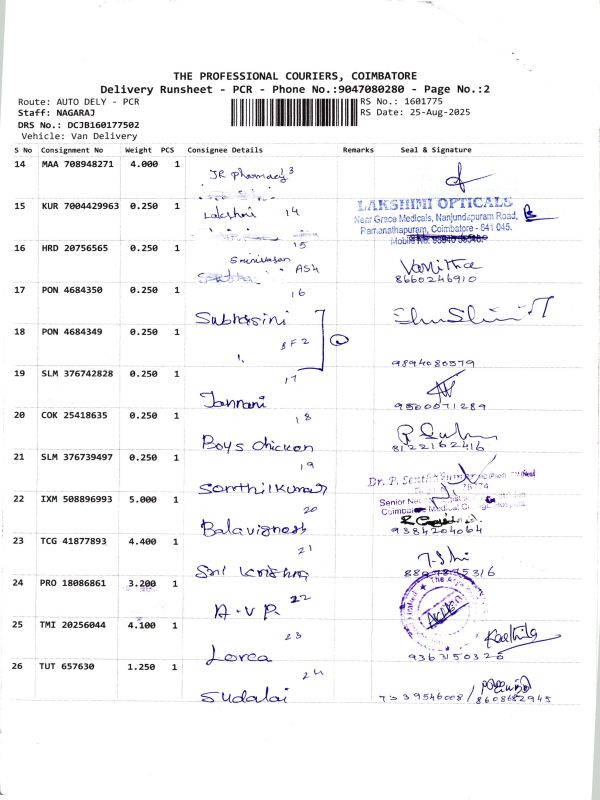 THE PROFESSIONAL COURIERS, COIMBATORE
Delivery Runsheet - PCR - Phone No.:9047080280 - Page No.:2
Route: AUTO DELY - PCR
RS No.: 1601775
Staff: NAGARAJ
RS Date: 25-Aug-2025
DRS No.: DCJB160177502
Vehicle: Van Delivery
S No Consignment No Weight PCS Consignee Details Remarks Seal & Signature
14 MAA 708948271 4.000 1
JR pharmacy 3
15 KUR 7004429963 0.250 1
Lakshmi 14
LAKSHMI OPTICALS
Near Grace Medicals, Nanjundapuram Road,
Ramanathapuram, Coimbatore - 641 045.
16 HRD 20756565 0.250 1
15
Srinivasan
ASH
Vanitha
8660246910
17 PON 4684350 0.250 1
16
Subhasini
18 PON 4684349 0.250 1
SF2
9894080579
19 SLM 376742828 0.250 1
17
Jannani
9500071289
20 COK 25418635 0.250 1
18
Boys chicken
8122162416
21 SLM 376739497 0.250 1
19
Senthilkumar
Dr. P. Senthil
Senior
Coimbatore Medical College Hospital
22 IXM 508896993 5.000 1
20
Balavignesh
9384204064
23 TCG 41877893 4.400 1
21
Sri Krishna
24 PRO 18086861 3.200 1
22
A.V.R
25 TMI 20256044 4.100 1
23
Lorea
9363150326
26 TUT 657630 1.250 1
24
Sudalai
7339546008 / 8608682945